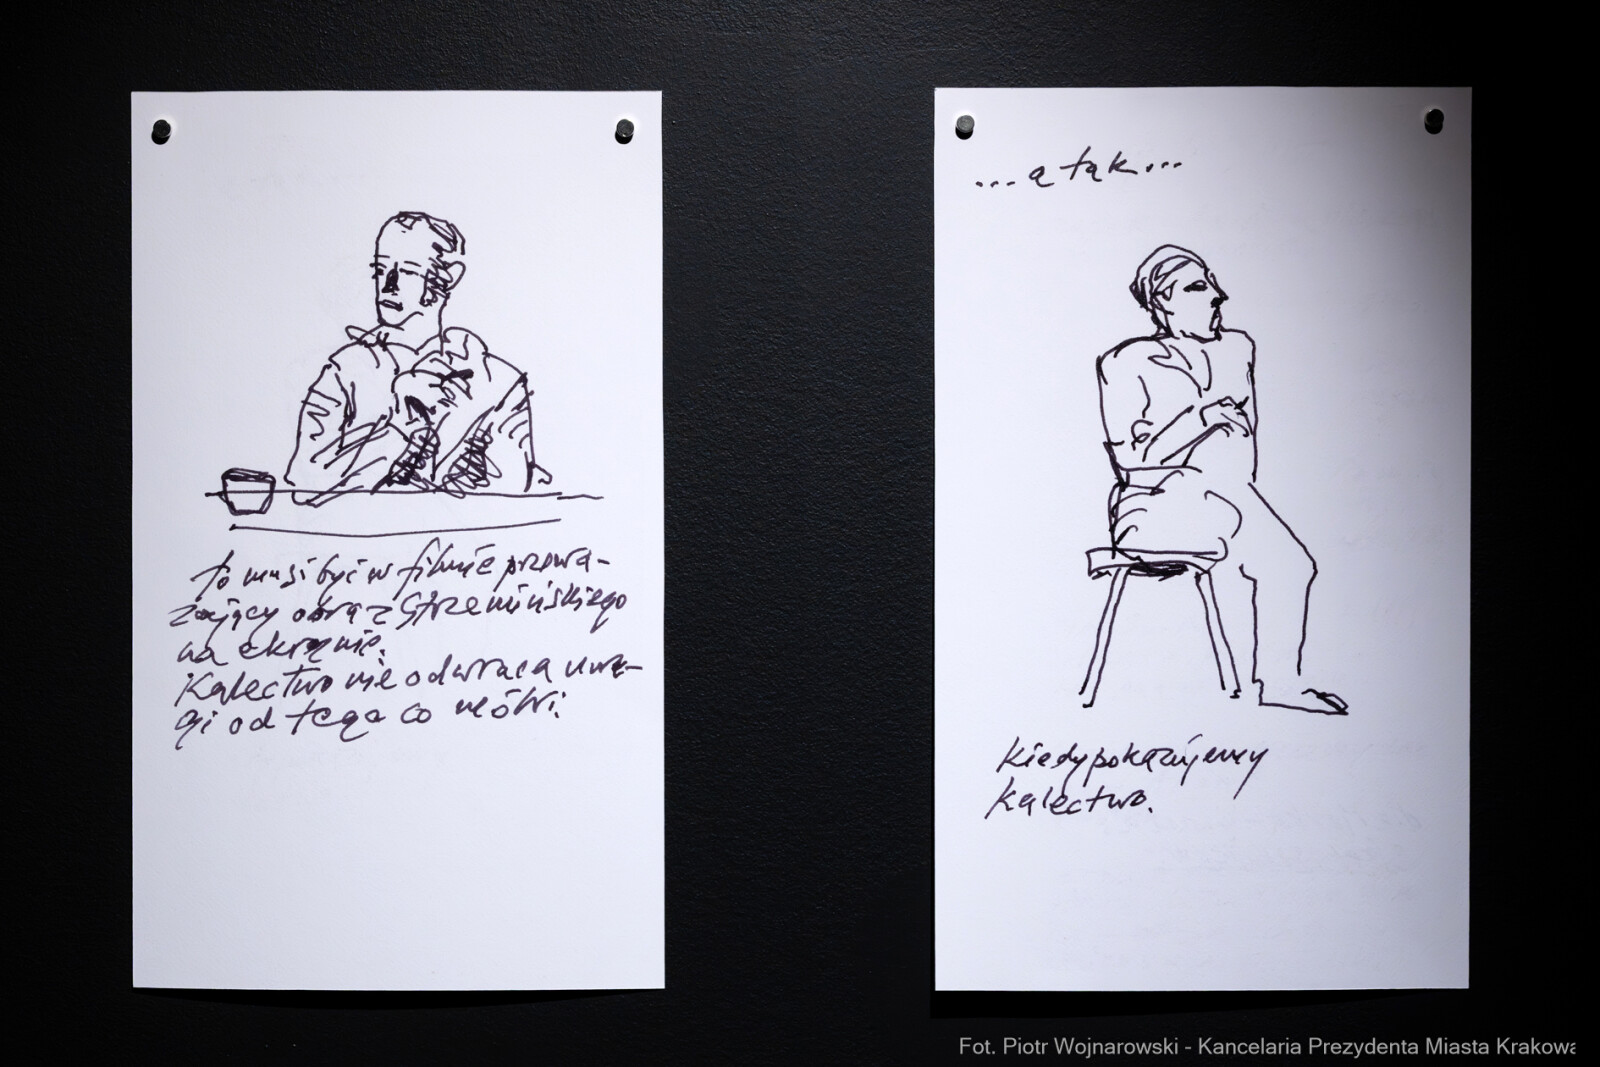 to musi być w filmie przewa-
żający obraz Strzemińskiego
na ekranie.
Kalectwo nie odwraca uwa-
gi od tego co mówi.
...a tak...
kiedy pokazujemy
kalectwo.
Fot. Piotr Wojnarowski - Kancelaria Prezydenta Miasta Krakowa